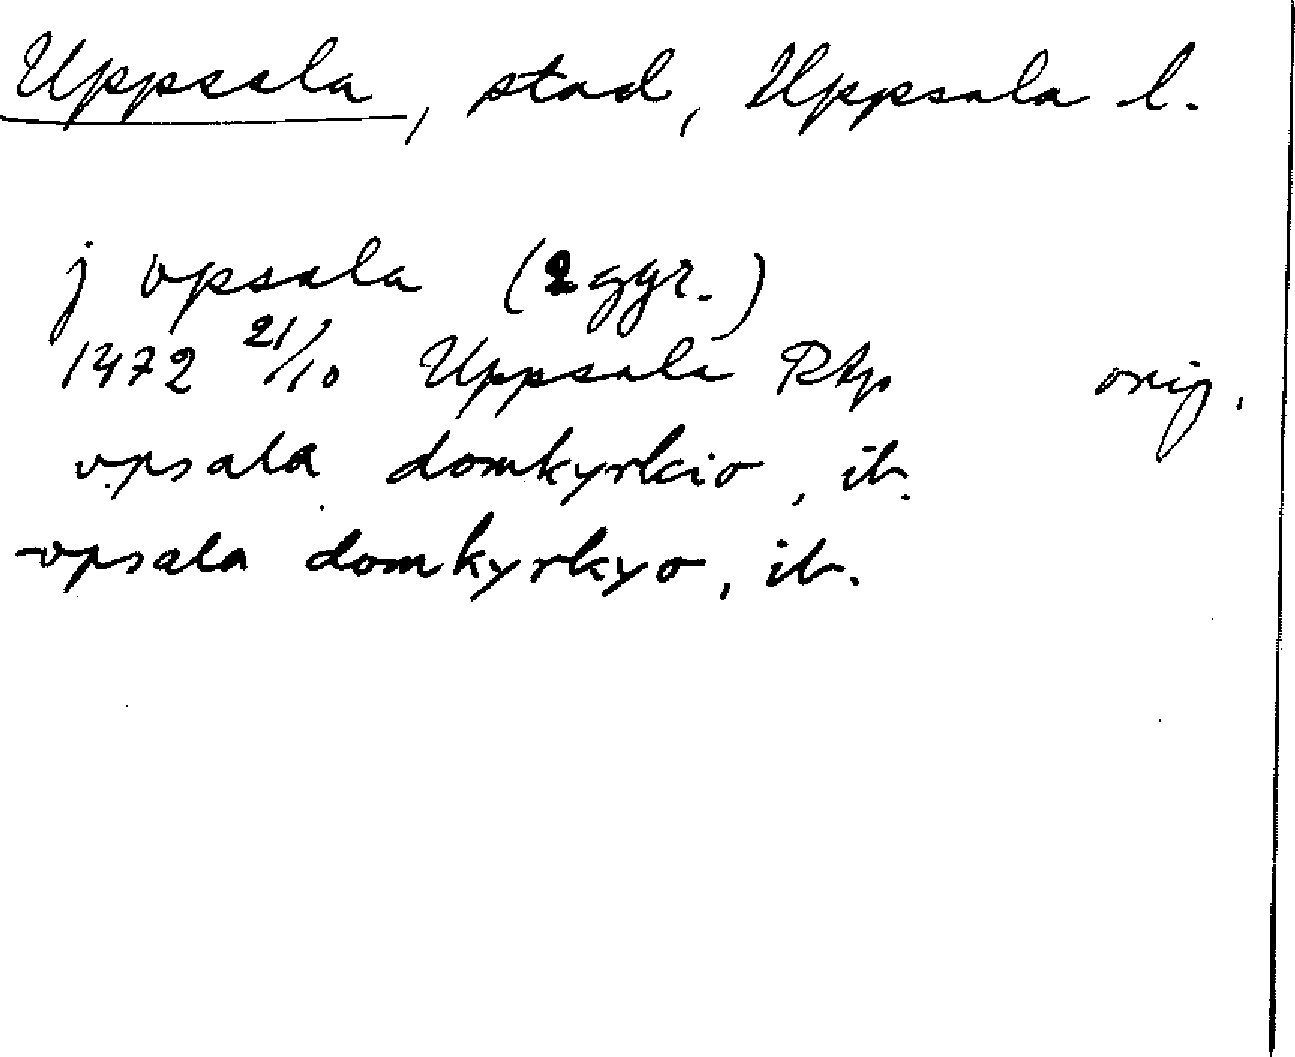 Uppsala, stad, Uppsala l.
j vpsala (2 ggr.)
1472 21/10 Uppsala RAp orig.
vpsala domkyrkio, ib.
vpsala domkyrkyo, ib.